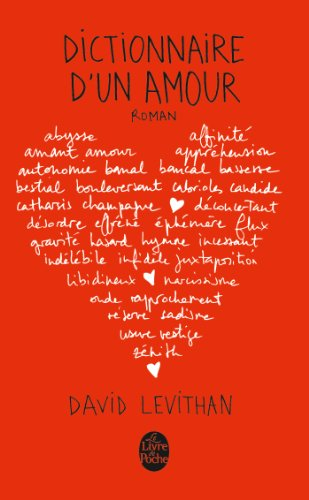 DICTIONNAIRE
D'UN AMOUR
ROMAN
abysse affinité
amant amour appréhension
autonomie banal bancal bassesse
bestial bouleversant cabrioles candide
catharsis champagne déconcertant
désordre effréné éphémère flux
gravité hasard hymne incessant
indélébile infidèle juxtaposition
libidineux narcissisme
onde rapprochement
réserve sadisme
usure vestige
zénith
DAVID LEVITHAN
Le
Livre
de
Poche